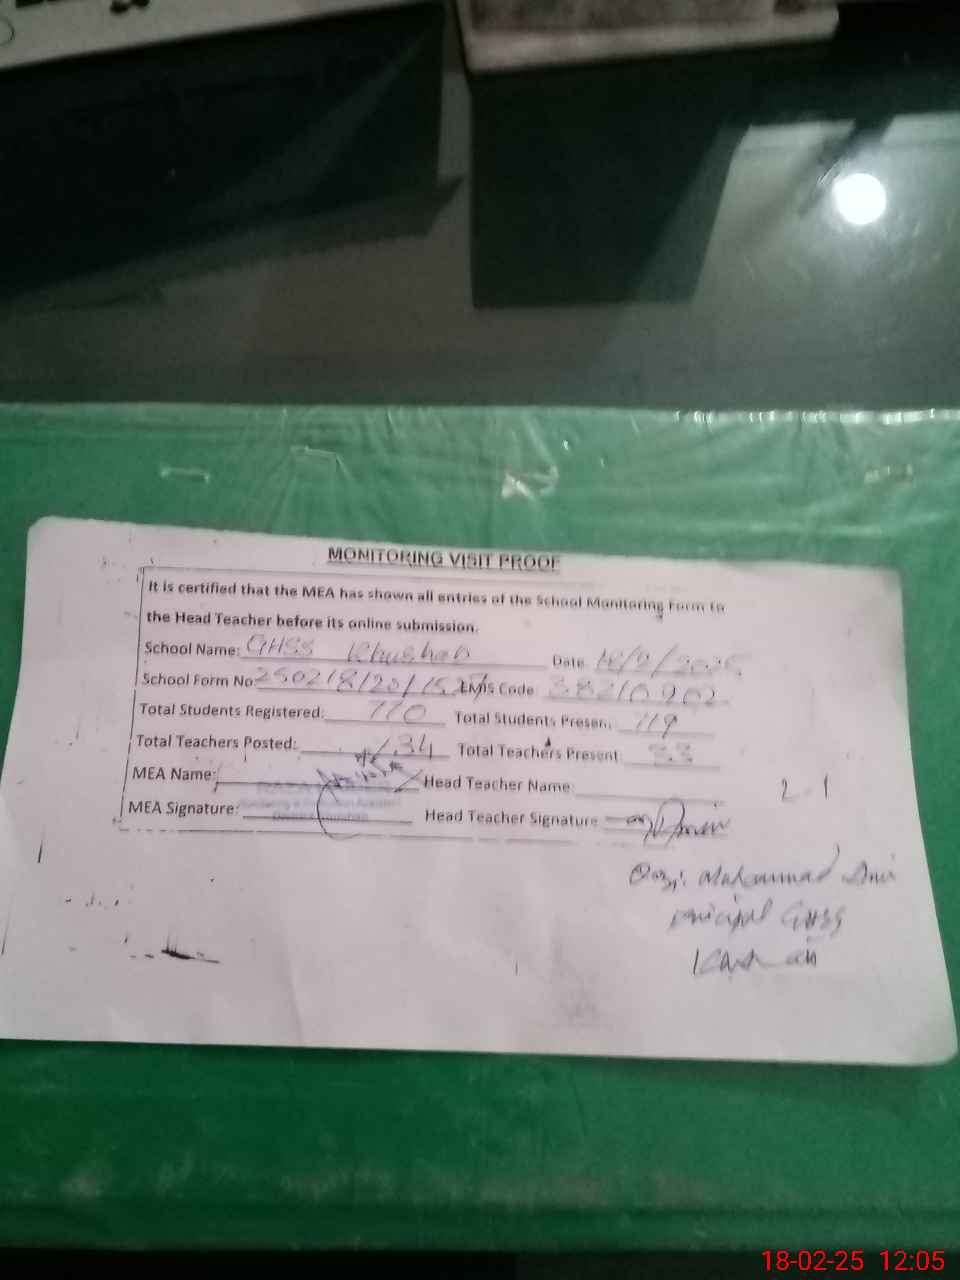 MONITORING VISIT PROOF
It is certified that the MEA has shown all entries of the School Monitoring Form to
the Head Teacher before its online submission.
School Name: GHSS Khushab Date 18/2/2025
School Form No: EMIS Code 38210902
Total Students Registered: 770 Total Students Present 719
Total Teachers Posted: 34 Total Teachers Present: 33
MEA Name: Head Teacher Name:
MEA Signature: Head Teacher Signature
2-1
Muhammad
GHSS
18-02-25 12:05